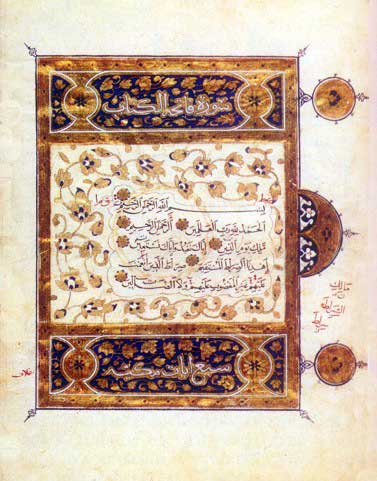 سورة فاتحة الكتاب
بسم الله الرحمن الرحيم
الحمد لله رب العلمين الرحمن الرحيم
ملك يوم الدين إياك نعبد وإياك نستعين
اهدنا الصرط المستقيم صرط الذين أنعمت
عليهم غير المغضوب عليهم ولا الضالين
سبع ايات مكية